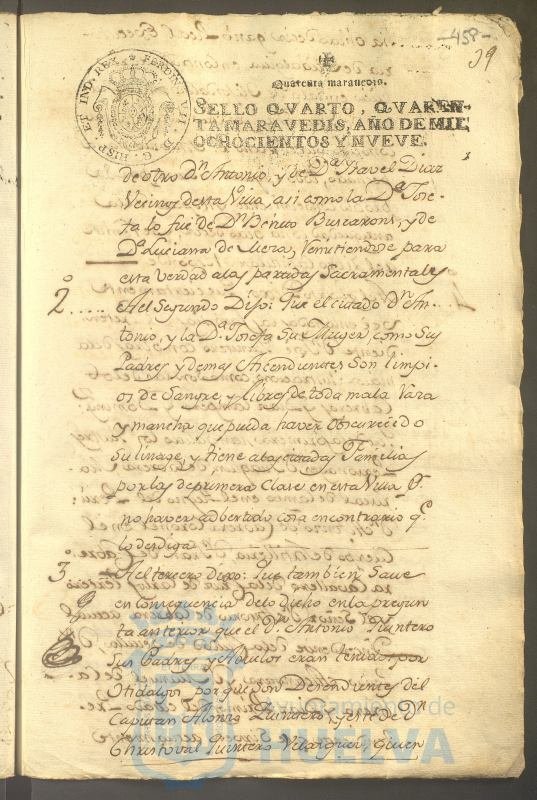 458
39
FERDIN. VII. D. G. HISP. ET IND. REX.
Quarenta maravedis.
SELLO QVARTO, QVAREN-
TA MARAVEDIS, AÑO DE MIL
OCHOCIENTOS Y NVEVE.
de otro Dn. Antonio, y de Da. Ysavel Diaz
Vecinos de esta Villa, asi como la Da. Jose-
fa lo fue de Dn. Benito Buscarons, y de
Da. Luciana de Mera, remitiendose para
esta verdad a las partidas Sacramentales
2o. Al Segundo Dijo: Que el citado Dn. An-
tonio, y la Da. Josefa Su Muger, como Sus
Padres y demas Ascendientes Son limpi-
os de Sangre, y libres de toda mala Raza
y mancha que pueda haver obscurecido
su linage, y tiene a las citadas Familias
por las de primera Clase en esta Villa
no haver adbertido cosa en contrario q.
lo desdiga
3o. Al tercero dixo: Que tambien Save
en consequencia de lo dicho en la pregun-
ta anterior que el D. Antonio Quintero
Sus Padres y Abuelos eran tenidos por
Hidalgos, porque son Desendientes del
Capitan Alonso Quintero, y este de Dn.
Christoval Quintero Velazquez, quien
Ayuntamiento de
HUELVA